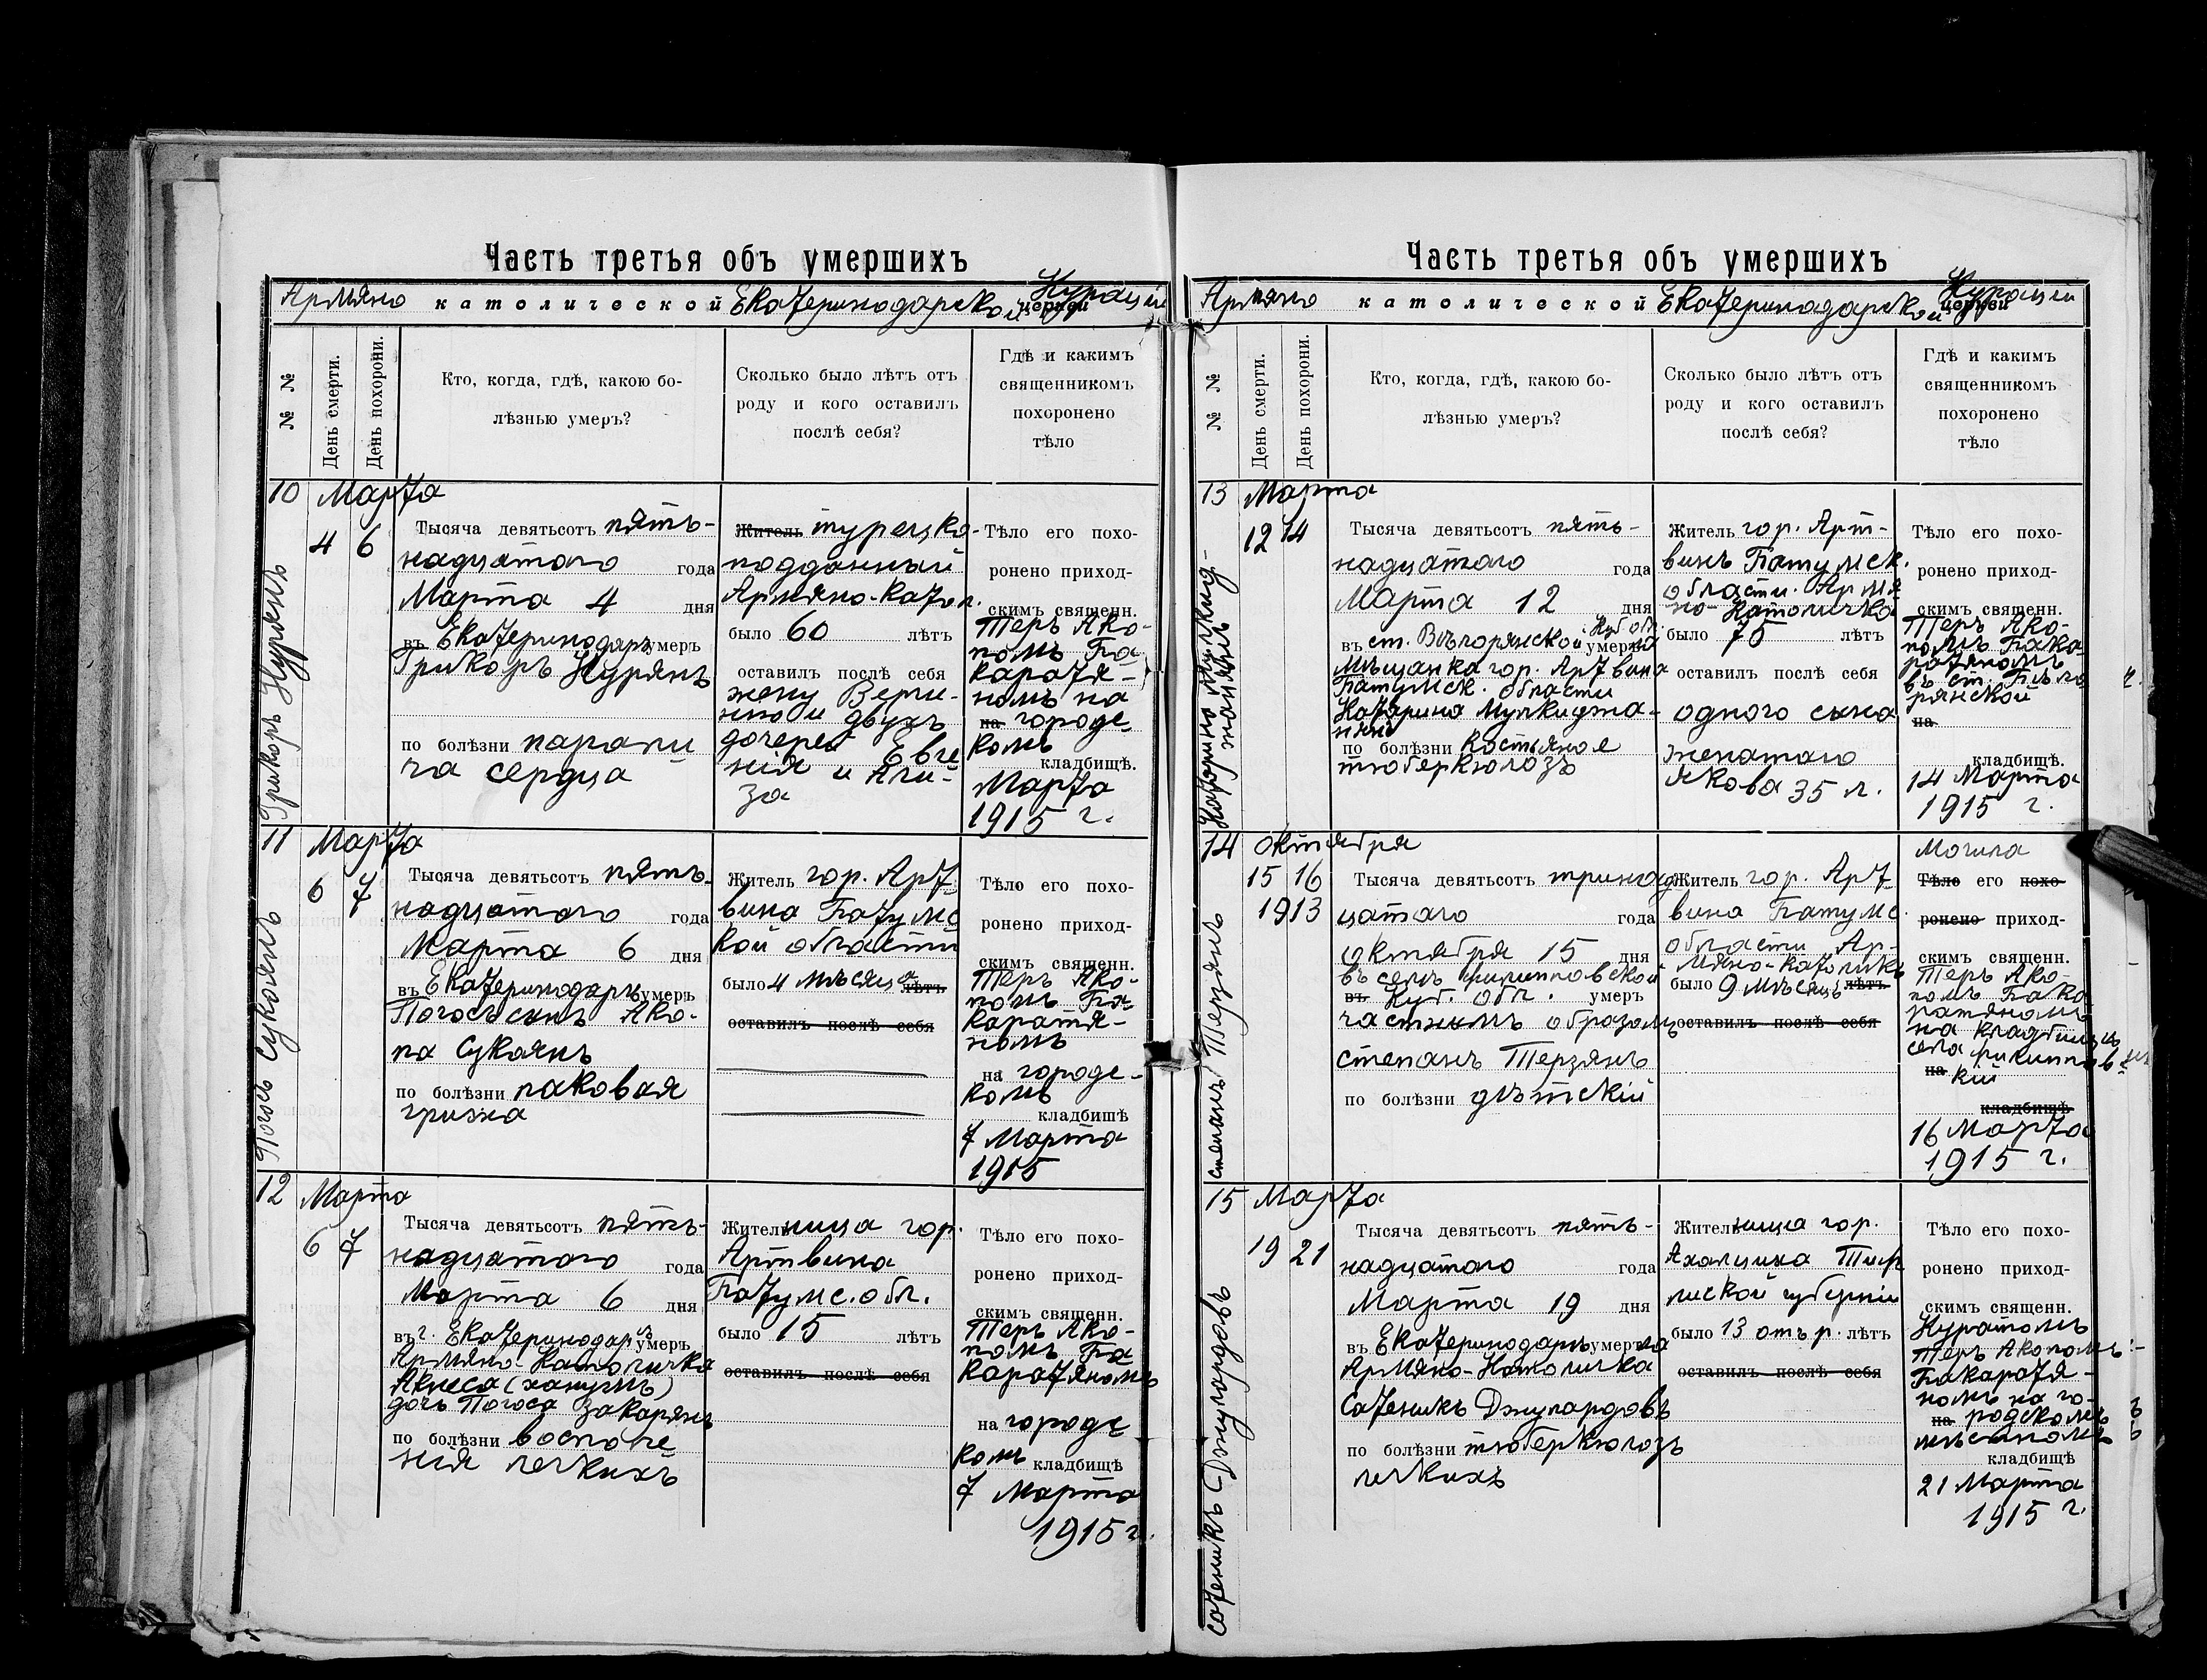 Часть третья объ умершихъ
Армяно католической Екатеринодарской Курации
церкви
№ №
День смерти.
День похорони.
Кто, когда, гдѣ, какою бо-
лѣзнью умеръ?
Сколько было лѣтъ отъ
роду и кого оставилъ
послѣ себя?
Гдѣ и какимъ
священникомъ
похоронено
тѣло
10 Марта
4 6
Григоръ Нурянъ
Тысяча девятьсотъ пять-
надцатаго года
Марта 4 дня
въ Екатеринодарѣ умеръ
Григоръ Нурянъ
по болѣзни парали
ча сердца
Житель турецко-
подданный
Армяно-катол.
было 60 лѣтъ
оставилъ послѣ себя
жену Верги-
нію и двухъ
дочерей Евге
нія и Али-
за
Тѣло его похо-
ронено приход-
скимъ священ.
Теръ Ако-
помъ Ба-
карατя-
номъ на
на городс-
комъ
кладбищѣ.
Марта
1915 г.
11 Марта
6 7
Погосъ Сукоянъ
Тысяча девятьсотъ пять-
надцатаго года
Марта 6 дня
въ Екатеринодарѣ умеръ
Погосъ сынъ Ако-
па Сукоянъ
по болѣзни паховая
грижа
Житель гор. Арт-
вина Батумс
кой области
было 4 мѣсяца лѣтъ
оставилъ послѣ себя
Тѣло его похо-
ронено приход-
скимъ священ.
Теръ Ако-
помъ Ба-
каратя-
номъ
на городс-
комъ
кладбищѣ
7 Марта
1915
12 Марта
6 7
Тысяча девятьсотъ пять-
надцатаго года
Марта 6 дня
въ г. Екатеринодарѣ умеръ
Армяно-Католичка
Акнеса (ханумъ)
дочь Погоса Закарянъ
по болѣзни восполе
нія легкихъ
Жительница гор.
Артвина
Батумс. обл.
было 15 лѣтъ
оставилъ послѣ себя
Тѣло его похо-
ронено приход-
скимъ священ.
Теръ Ако-
помъ Ба-
каратяномъ
на городс
комъ кладбищѣ
7 Марта
1915 г.
Часть третья объ умершихъ
Армяно католической Екатеринодарской Курации
церкви
№ №
День смерти.
День похорони.
Кто, когда, гдѣ, какою бо-
лѣзнью умеръ?
Сколько было лѣтъ отъ
роду и кого оставилъ
послѣ себя?
Гдѣ и какимъ
священникомъ
похоронено
тѣло
13 Марта
12 14
Тысяча девятьсотъ пять-
надцатаго года
Марта 12 дня
Куб обл.
въ ст. Бѣлорянской умерла
Мѣщанка гор. Артвина
Батумск. области
Катарина Мулкиджа-
нянъ
по болѣзни костьяное
тюберкюлозъ
Житель гор. Арт-
винъ Батумск.
области. Армя
но-католичка
было 75 лѣтъ
оставилъ послѣ себя
одного сына
женатаго
Якова 35 л.
Тѣло его похо-
ронено приход-
скимъ священ.
Теръ Ако-
помъ Бака
ратяномъ
въ ст. Бѣло
рянской
на
кладбищѣ.
14 Марта
1915 г.
14 Октября
15 16
1913
Степанъ Терзянъ
Тысяча девятьсотъ тринад
цатаго года
октября 15 дня
въ селѣ Филипповской
въ Куб. обл. умеръ
частнымъ образомъ
Степанъ Терзянъ
по болѣзни дѣтскій
Житель гор. Арт-
вина Батумс.
области Ар-
мяно-католикъ
было 9 мѣсяцъ лѣтъ
оставилъ послѣ себя
Могила
Тѣло его похо-
ронено приход-
скимъ священ.
Теръ Ако-
помъ Бака
ратяномъ
на кладбищѣ
села Филиппов
на кій
кладбищѣ
16 Марта
1915 г.
15 Марта
19 21
Сатеникъ Джулардовъ
Тысяча девятьсотъ пять-
надцатаго года
Марта 19 дня
въ Екатеринодарѣ умерла
Армяно-Католичка
Сатеникъ Джулардовъ
по болѣзни тюберкюлозъ
легкихъ
Жительница гор.
Ахалциха Тиф
лиской губерніи
было 13 отъ р. лѣтъ
оставилъ послѣ себя
Тѣло его похо-
ронено приход-
скимъ священ.
Куратомъ
Теръ Акопомъ
Бакаратя-
номъ на го-
на родскомъ
кладбищѣ
21 Марта
1915 г.